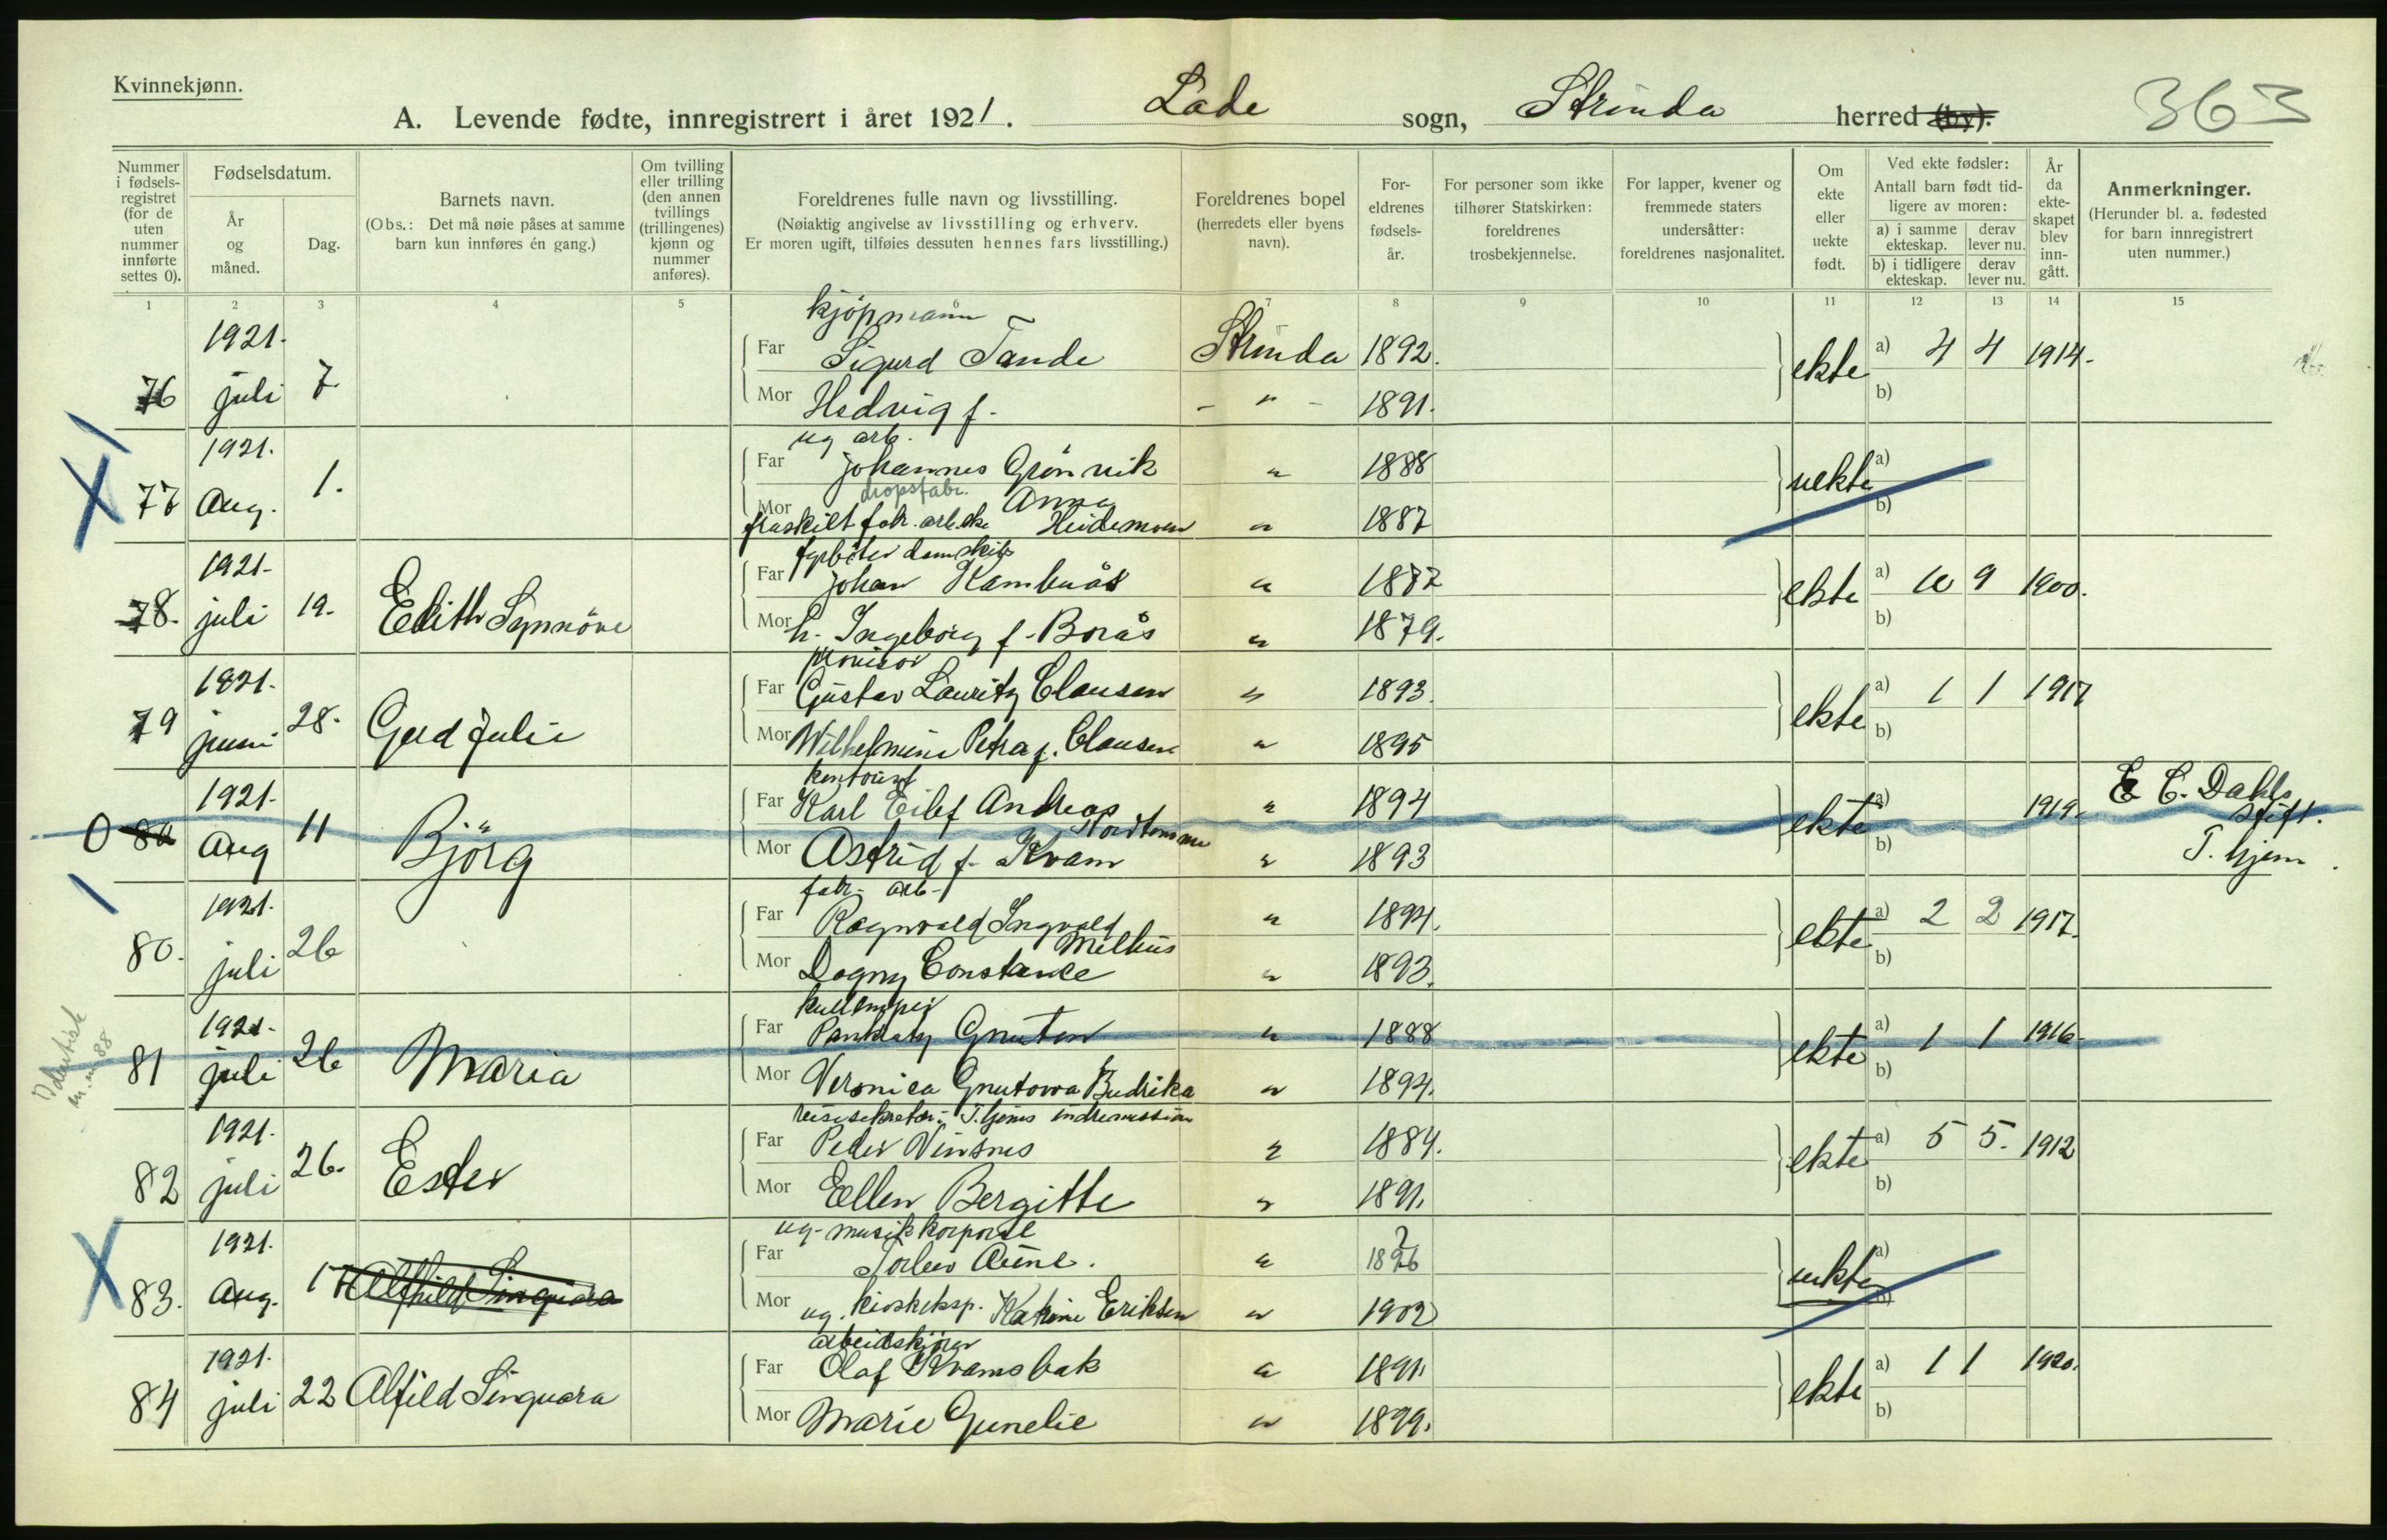 Kvinnekjønn.
363
A. Levende fødte, innregistrert i året 1921. Lade sogn, Strinda herred (by).
Nummer i fødsels-registret (for de uten nummer innførte settes 0).
Fødselsdatum.
År og måned.
Dag.
Barnets navn.
(Obs.: Det må nøie påses at samme barn kun innføres én gang.)
Om tvilling eller trilling (den annen tvillings (trillingenes) kjønn og nummer anføres).
Foreldrenes fulle navn og livsstilling.
(Nøiaktig angivelse av livsstilling og erhverv. Er moren ugift, tilføies dessuten hennes fars livsstilling.)
Foreldrenes bopel (herredets eller byens navn).
For-eldrenes fødsels-år.
For personer som ikke tilhører Statskirken: foreldrenes trosbekjennelse.
For lapper, kvener og fremmede staters undersåtter: foreldrenes nasjonalitet.
Om ekte eller uekte født.
Ved ekte fødsler: Antall barn født tid-ligere av moren:
a) i samme ekteskap. derav lever nu.
b) i tidligere ekteskap. derav lever nu.
År da ekte-skapet blev inn-gått.
Anmerkninger.
(Herunder bl. a. fødested for barn innregistrert uten nummer.)
1 2 3 4 5 6 7 8 9 10 11 12 13 14 15
kjøpmann
76 1921. juli 7. Far Sigurd Tande Strinda 1892. ekte a) 4 4 1914.
Mor Hedvig f. - " - 1891. b)
ug arb.
77 1921. Aug. 1. Far Johannes Grönvik " 1888 uekte a)
dropsfabr. Anna
Mor fraskilt fabr. arb.ske " 1887 b)
fyrböter
78. 1921. juli 19. Edith Synnöve Far Johan " 1877 ekte a) 10 9 1900.
Mor h. Ingeborg f. Borås " 1879. b)
provisor
79 1921. juni 28. Gerd Julie Far Gustav Lauritz Clausen " 1893. ekte a) 1 1 1917
Mor Wilhelmine Petra f. Clausen " 1895 b)
kontorist
0 80 1921. Aug 11 Björg Far Karl Eilef Andreas Nordtömme " 1894 ekte a) 1919. E. C. Dahls stift.
Mor Astrid f. Kvam " 1893 b) T.hjem.
fabr. arb.
80. 1921. juli 26 Far Ragnvald Ingvald Melhus " 1894. ekte a) 2 2 1917.
Mor Dagny Constance " 1893. b)
kullemper
81 1921. juli 26 Maria Far Gnuten " 1888 ekte a) 1 1 1916
Mor Veronica Gnutowa Budrika " 1894. b)
reisesekretær T.hjems indremission
82 1921. juli 26. Ester Far Peder Vinsnes " 1884. ekte a) 5 5. 1912
Mor Ellen Bergitte " 1891. b)
ug. musikkorporal
83. 1921. Aug. 17 Alfhild Singvara Far Torleiv Aune. " 1896 ? uekte a)
Mor ug. kioskeksp. Katrine Eriksen " 1902 b)
arbeidskjører
84 1921. juli 22 Alfild Singvara Far Olaf Kvamsbak " 1891. ekte a) 1 1 1920.
Mor Marie Gunelie " 1899. b)